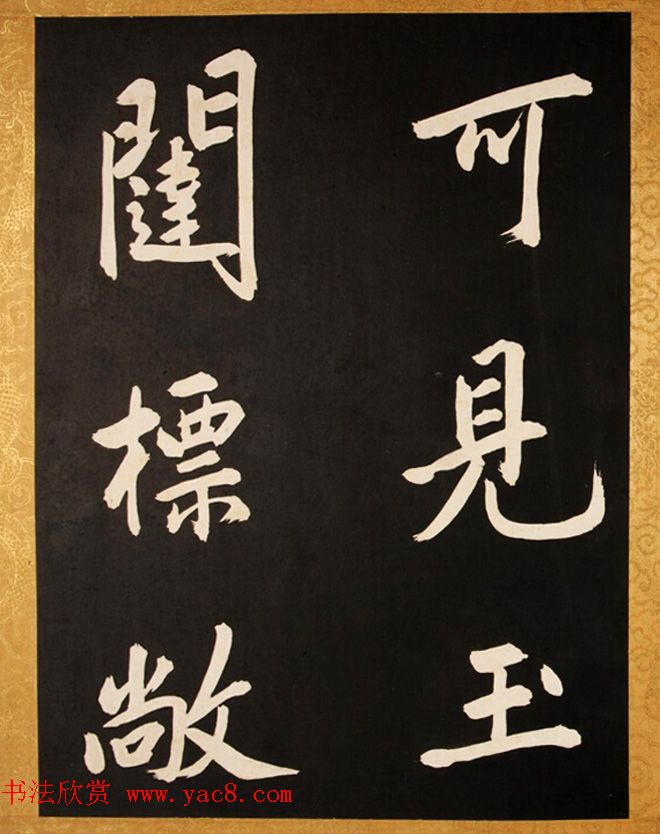 可見玉
闥標敞
书法欣赏 www.yac8.com